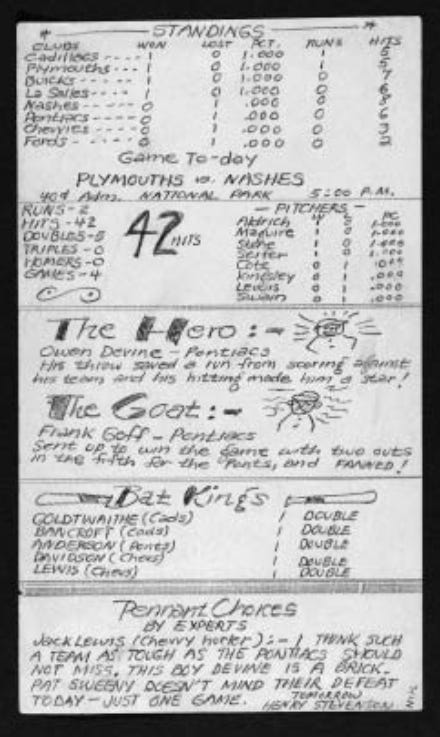 STANDINGS
CLUBS WON LOST PCT. RUNS HITS
Cadillacs ---- 1 0 1.000 5
Plymouths -- 1 0 1.000 5
Buicks ---- 1 0 1.000 1 7
La Salles --- 1 0 1.000 6
Nashes ---- 0 1 .000 0 8
Pontiacs -- 0 1 .000 0 6
Chevvies -- 0 1 .000 0 3
Fords - - - 0 1 .000 0 2
Game To-day
PLYMOUTHS vs. NASHES
40¢ Adm. NATIONAL PARK 5:00 P.M.
RUNS - 2
HITS - 42
DOUBLES - 5
TRIPLES - 0
HOMERS - 0
GAMES - 4
42 HITS
— PITCHERS —
W L PC
Aldrich 1 0 1.000
Maguire 1 0 1.000
1 0 1.000
1 0 1.000
Cote 0 1 .000
Kingsley 0 1 .000
Lewis 0 1 .000
Swain 0 1 .000
The Hero :-
Owen Devine - Pontiacs
His throw saved a run from scoring against
his team and his hitting made him a star!
The Goat :-
Frank Goff - Pontiacs
Sent up to win the game with two outs
in the fifth for the "Ponts, and FANNED!
Bat Kings
GOLDTWAITHE (Cads) 1 DOUBLE
BANCROFT (Cads) 1 DOUBLE
ANDERSON (Ponts) DOUBLE
DAVIDSON (Chevs) 1 DOUBLE
LEWIS (Chevs) 1 DOUBLE
Pennant Choices
BY EXPERTS
Jack Lewis (Chevvy hurler) :- I THINK SUCH
A TEAM AS TOUGH AS THE PONTIACS SHOULD
NOT MISS. THIS BOY DEVINE IS A BRICK.
PAT SWEENY DOESN'T MIND THEIR DEFEAT
TODAY - JUST ONE GAME. TOMORROW
HENRY STEVENSON